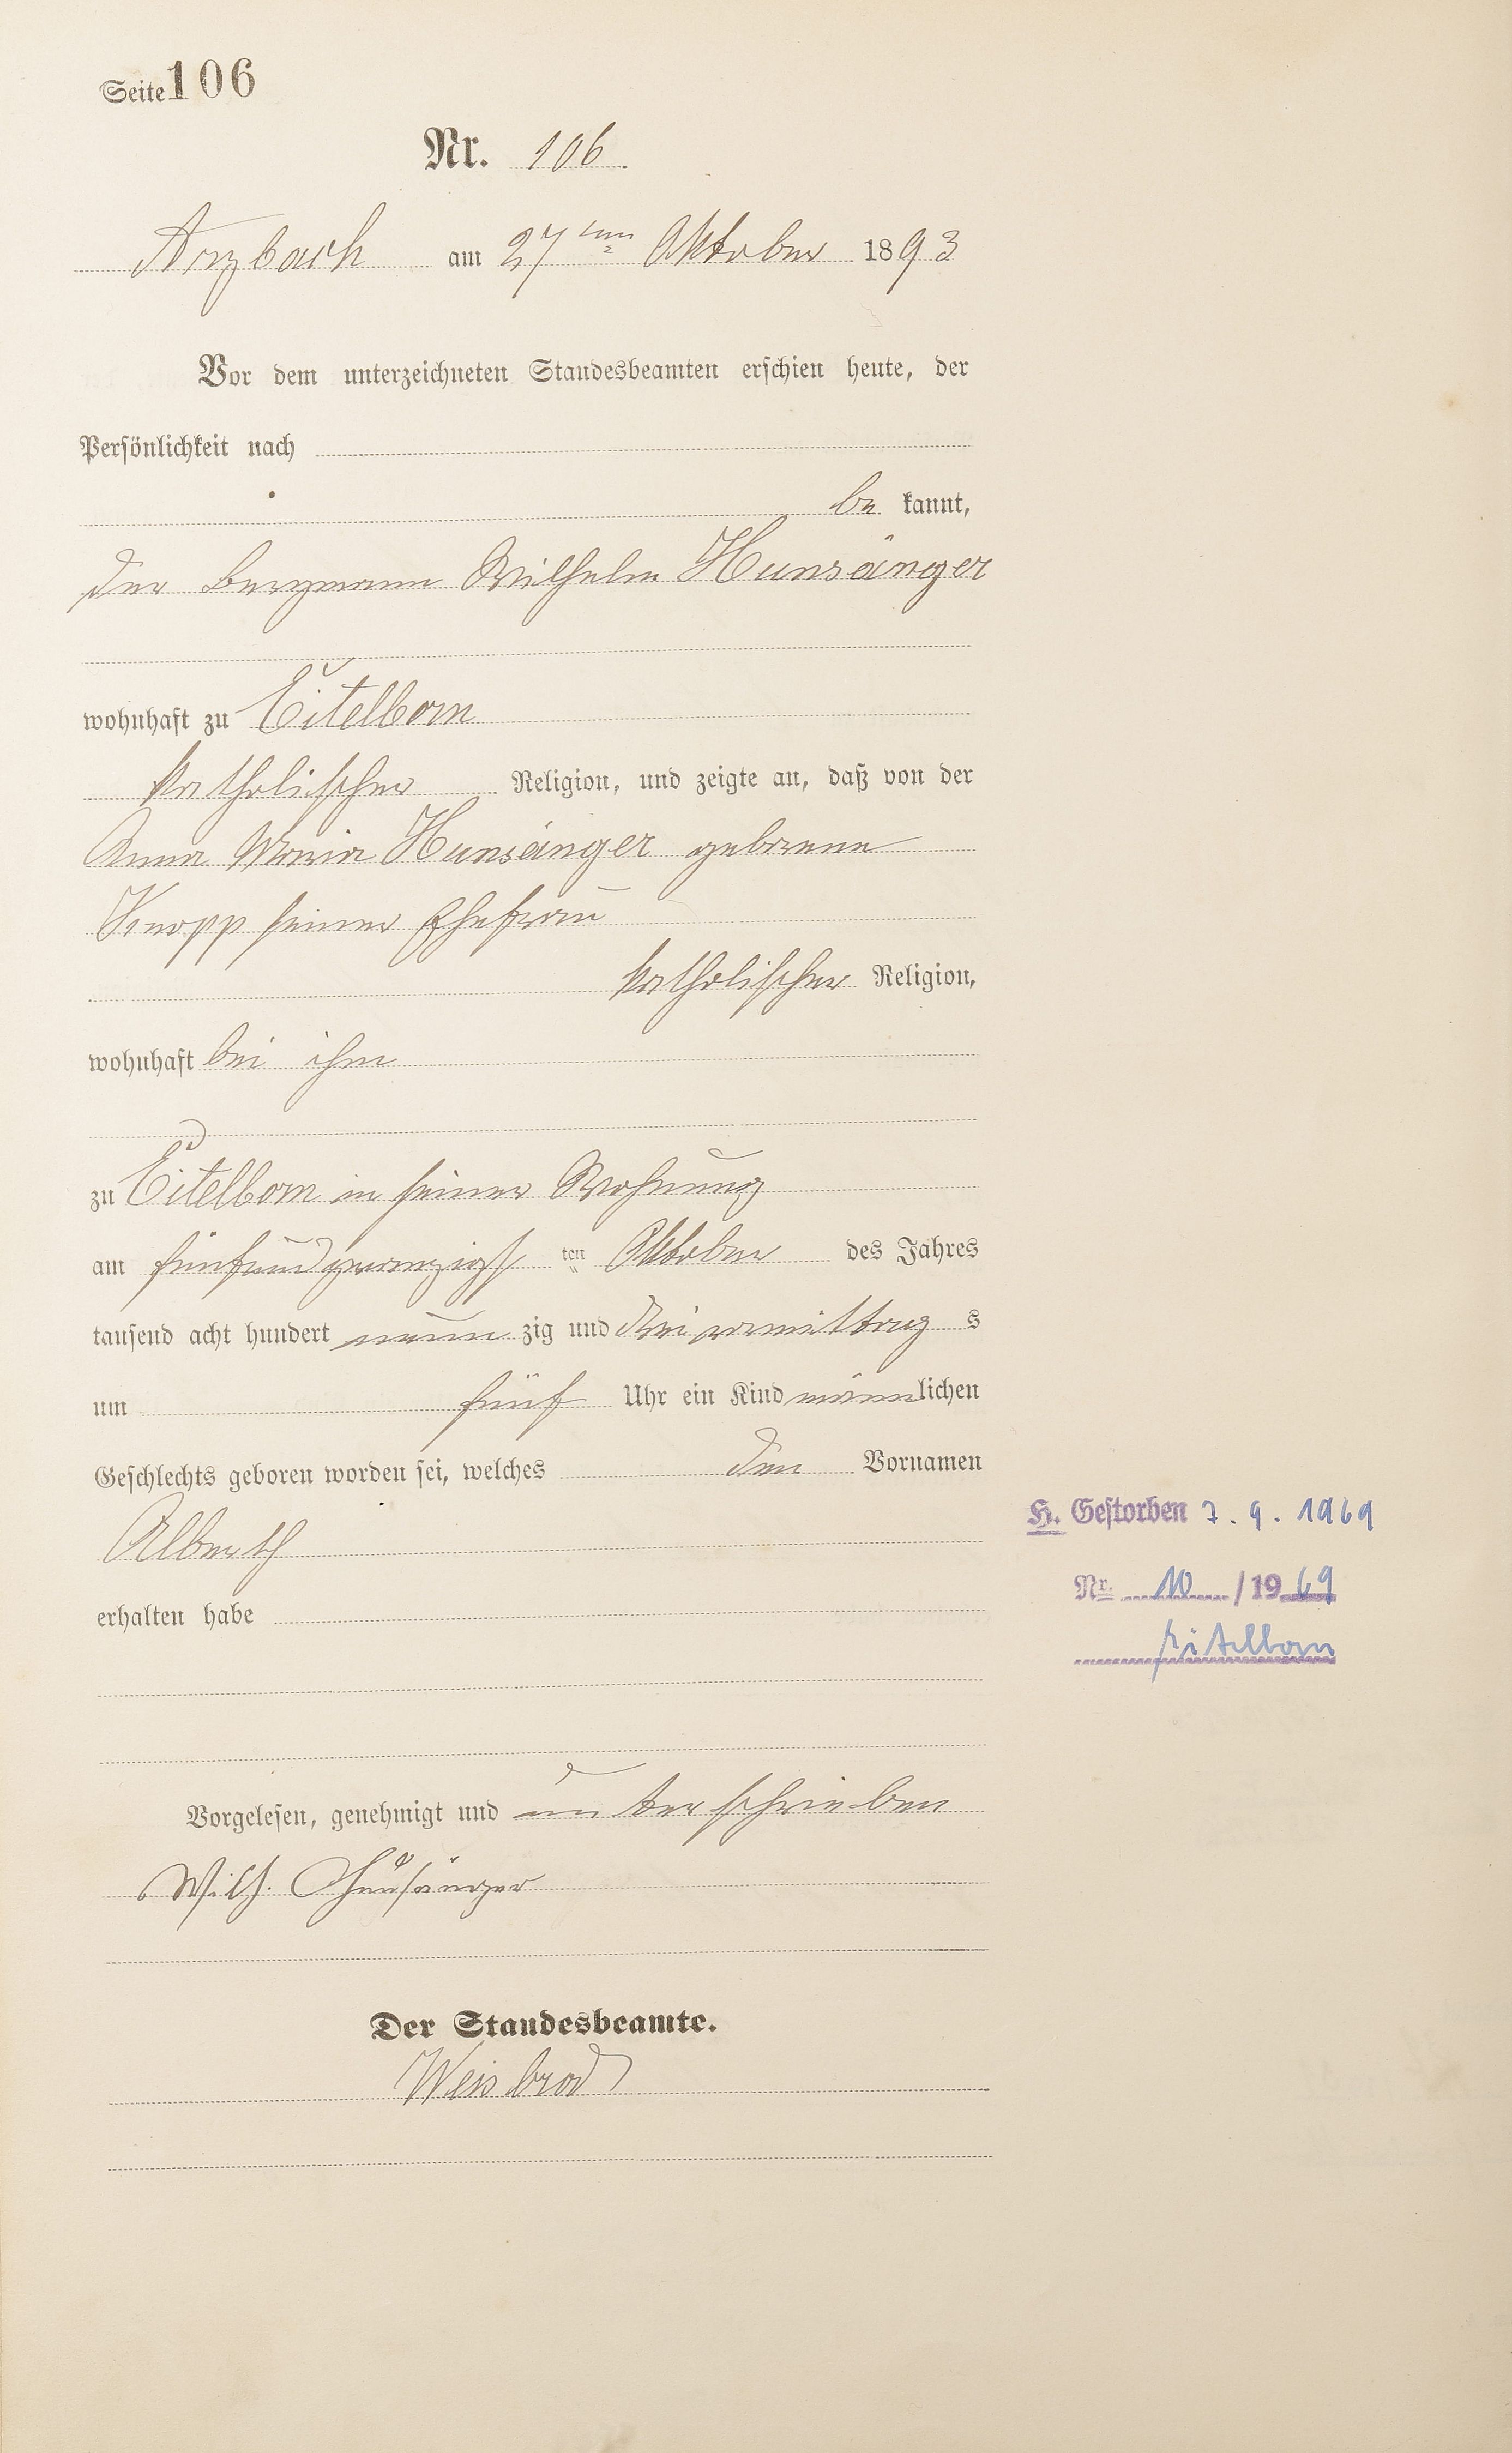 Seite 106
Nr. 106.
Arzbach am 27ten Oktober 1893
Vor dem unterzeichneten Standesbeamten erschien heute, der
Persönlichkeit nach
be kannt,
der Bergmann Wilhelm Hunsänger
wohnhaft zu Eitelborn
katholischer Religion, und zeigte an, daß von der
Anna Maria Hunsänger geborene
Knopp seiner Ehefrau
katholischer Religion,
wohnhaft bei ihm
zu Eitelborn in seiner Wohnung
am fünfundzwanzigst ten Oktober des Jahres
tausend acht hundert neun zig und drei vormittag s
um fünf Uhr ein Kind männlichen
Geschlechts geboren worden sei, welches den Vornamen
Alberth
H. Gestorben 7. 9. 1969
erhalten habe
Nr. 10 / 19 69
Eitelborn
Vorgelesen, genehmigt und unterschrieben
Wilh. Hunsänger
Der Standesbeamte.
Weisbrod